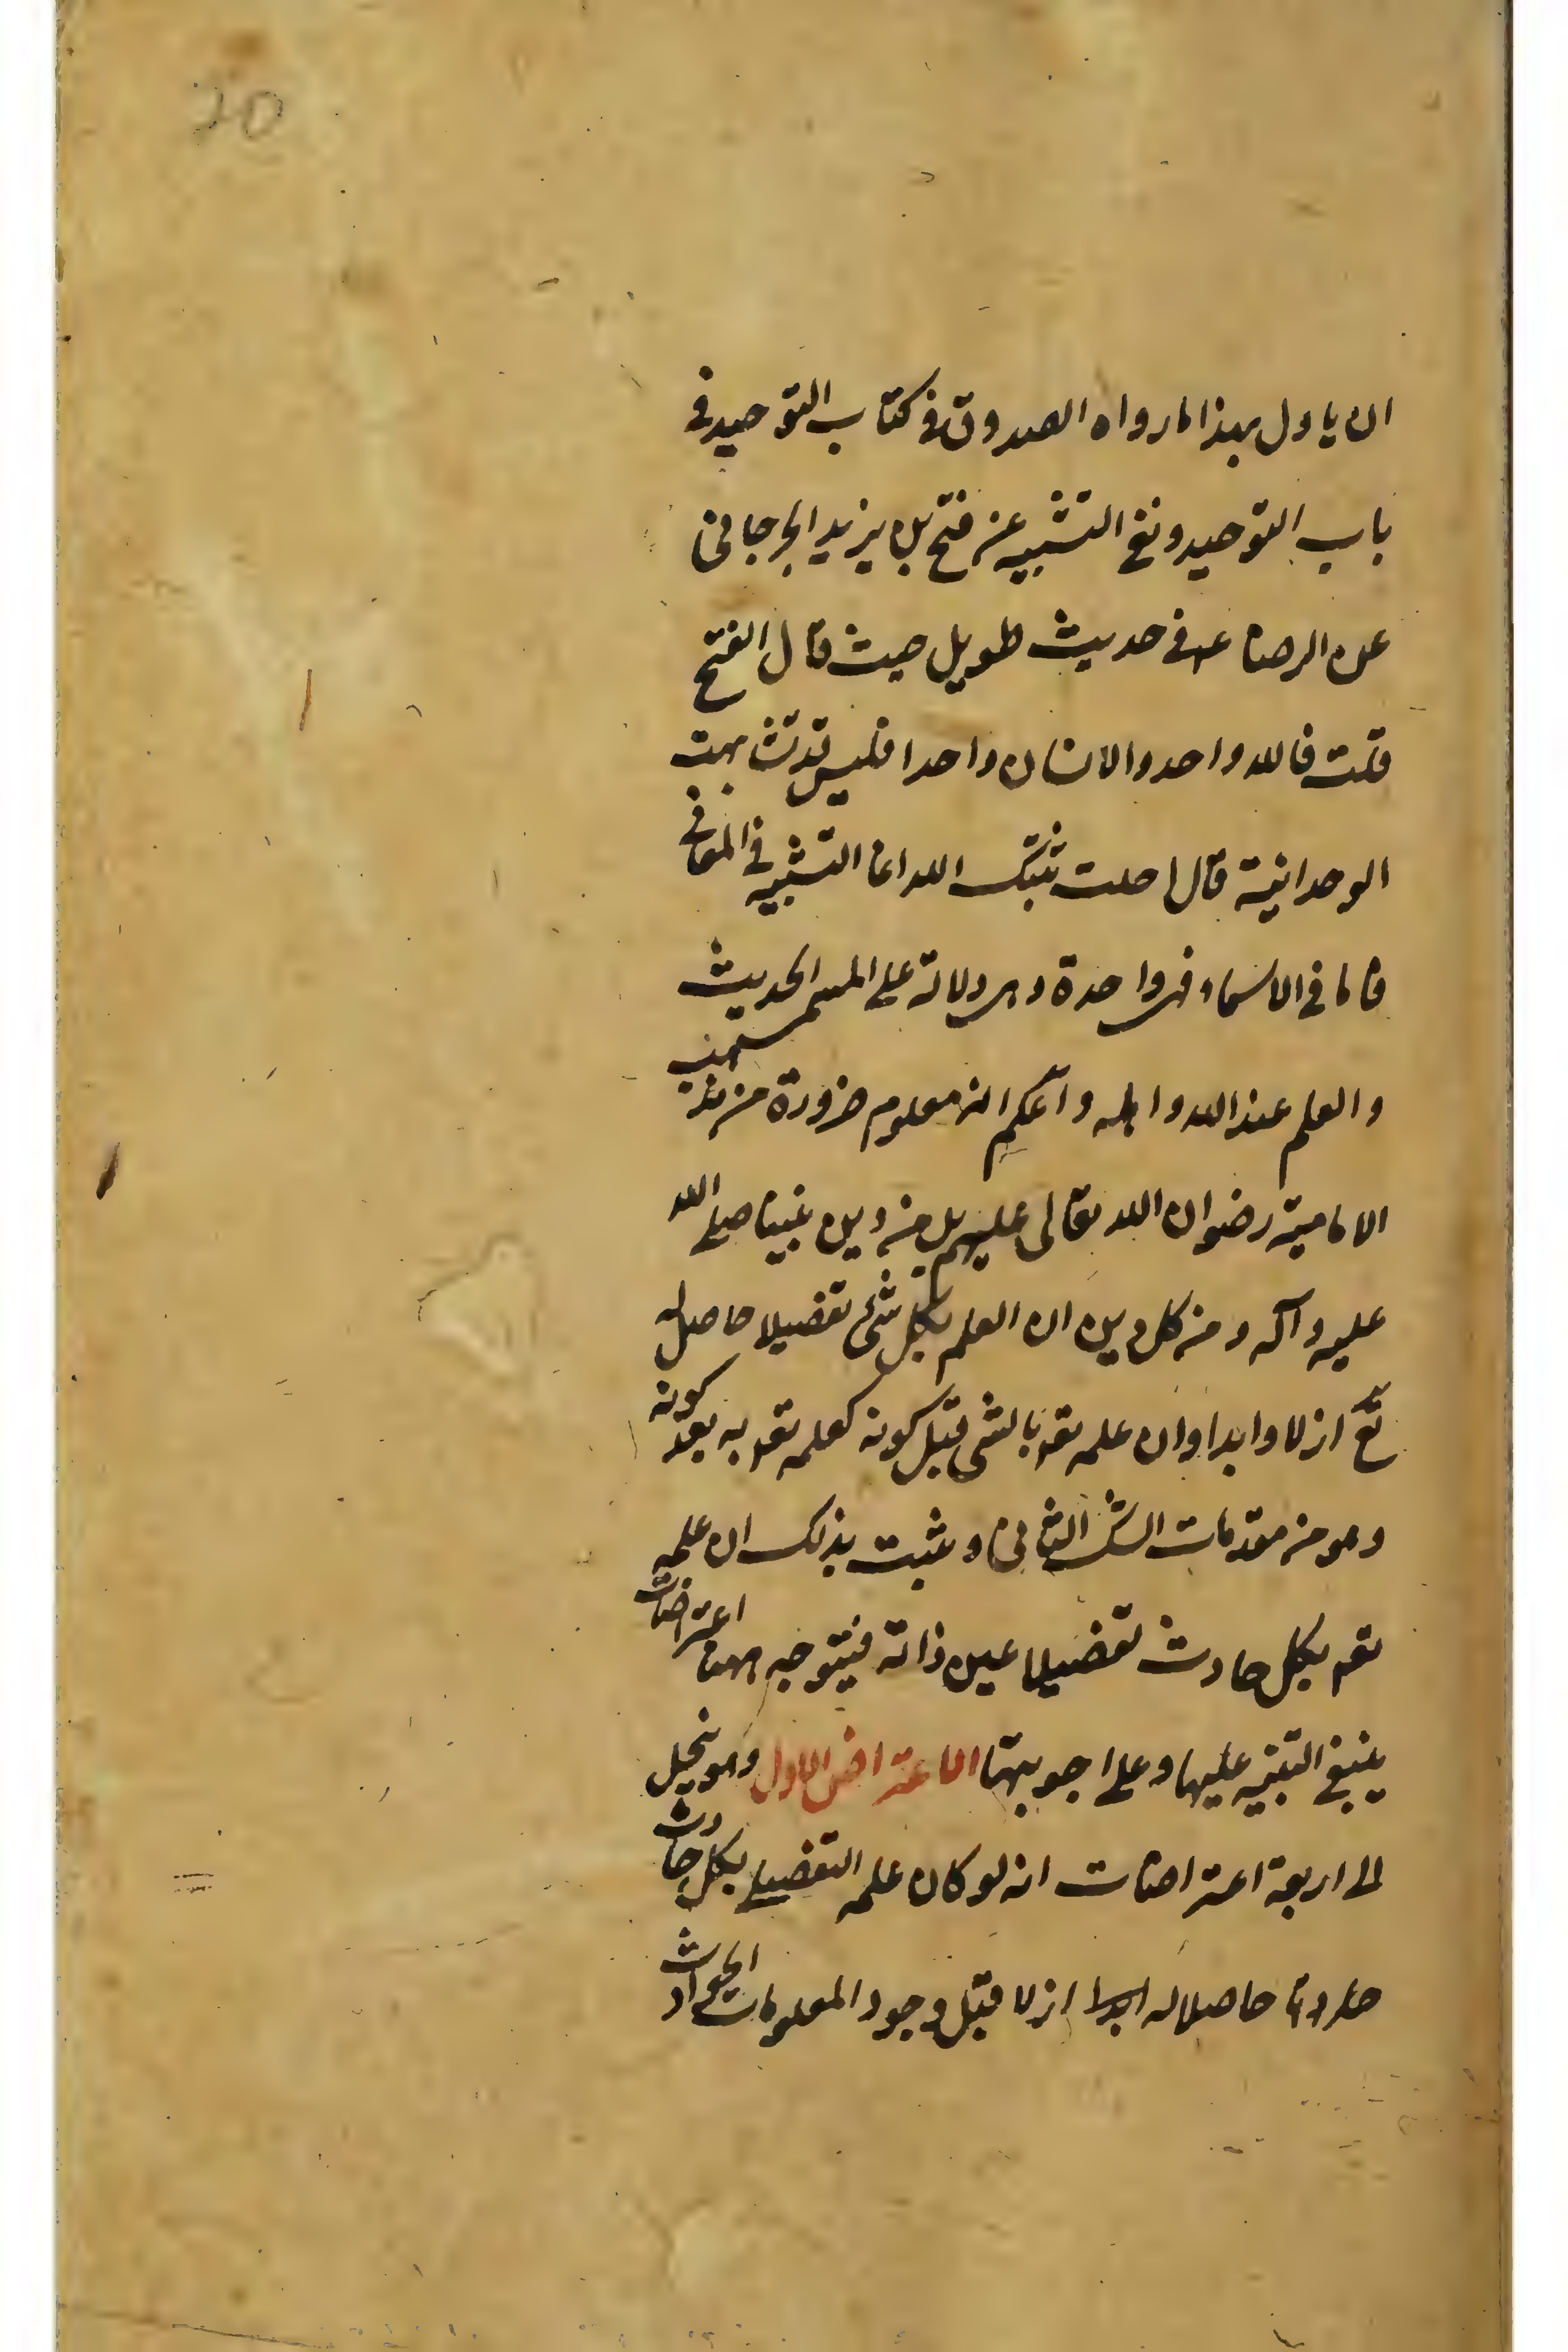 20
ان ياول بهذا ما رواه الصدوق في كتاب التوحيد في
باب التوحيد و نفي التشبيه عن فتح بن يزيد الجرجاني
عن الرضا ع في حديث طويل حيث قال الفتح
قلت فالله واحد والانسان واحد افليس قد تشابهت
الوحدانية قال احلت ثبتك الله انما التشبيه في المعاني
فاما في الاسماء فهي واحدة و هي دلالة على المسمى الحديث
والعلم عند الله و اهله و اعلم انه معلوم ضرورة من مذهب
الامامية رضوان الله تعالى عليهم بل من دين نبينا صلى الله
عليه و آله و من كل دين ان العلم بكل شئ تفصيلا حاصل له
تع ازلا و ابدا و ان علمه تعه بالشي قبل كونه كعلمه تعه به بعد كونه
و هو من مقدمات الشك الثاني و يثبت بذلك ان علمه
تعه بكل حادث تفصيلا عين ذاته فيتوجه ههنا اعتراضات
ينبغي التنبيه عليها و على اجوبتها الاعتراض الاول و هو ينحل
الى اربعة اعتراضات انه لو كان علمه التفصيلي بكل حادث
حادث حاصلا له ابدا ازلا قبل وجود المعلومات الحوادث